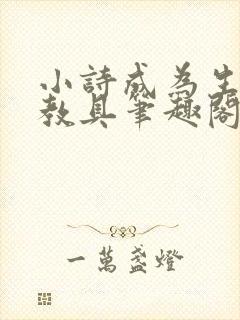 小詩成為生
教具筆趣閣
一萬盞燈